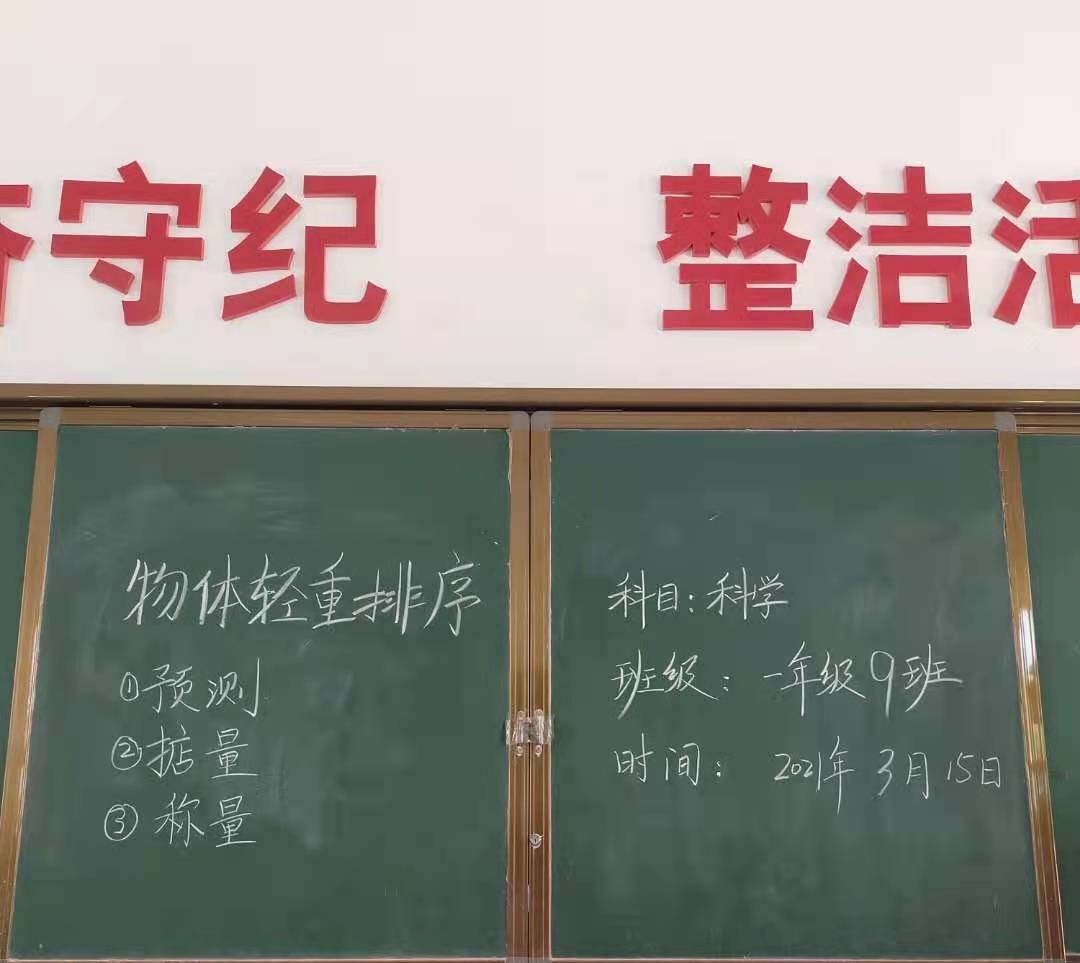 守纪 整洁
物体轻重排序
①预测
②掂量
③称量
科目:科学
班级:一年级9班
时间:2021年3月15日